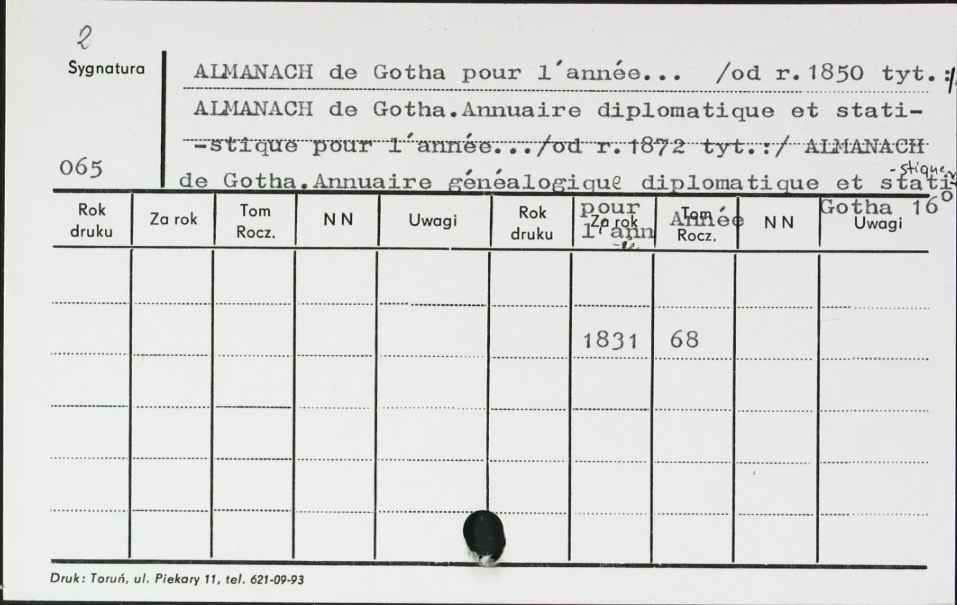 2
Sygnatura
ALMANACH de Gotha pour l'année... /od r.1850 tyt.:/
ALMANACH de Gotha.Annuaire diplomatique et stati-
-stique pour l'année.../od r.1872 tyt.:/ ALMANACH
065
de Gotha.Annuaire généalogique diplomatique et stati-
-stique
pour Année Gotha 16°
l'ann
-ée
Rok druku Za rok Tom Rocz. N N Uwagi Rok druku Za rok Tom Rocz. N N Uwagi
1831 68
Druk: Toruń, ul. Piekary 11, tel. 621-09-93